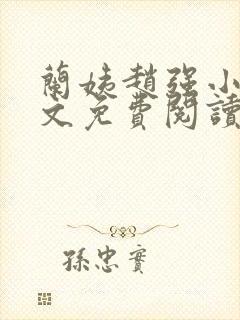 蘭姨趙強小
文免費閱讀
孫忠實